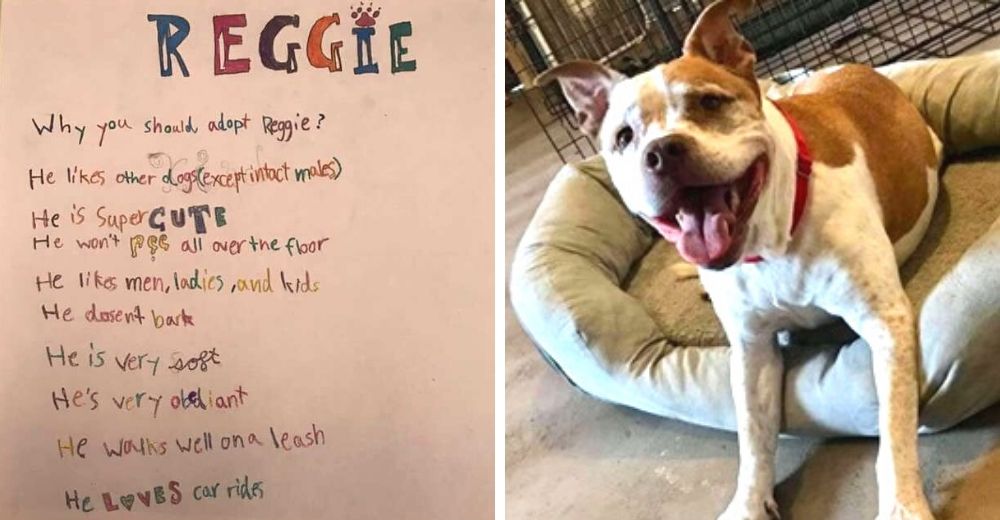 REGGIE
Why you should adopt Reggie?
He likes other dogs(except intact males)
He is Super CUTE
He won't pee all over the floor
He likes men, ladies, and kids
He dosent bark
He is very soft
He's very obediant
He walks well on a leash
He LOVES car rides